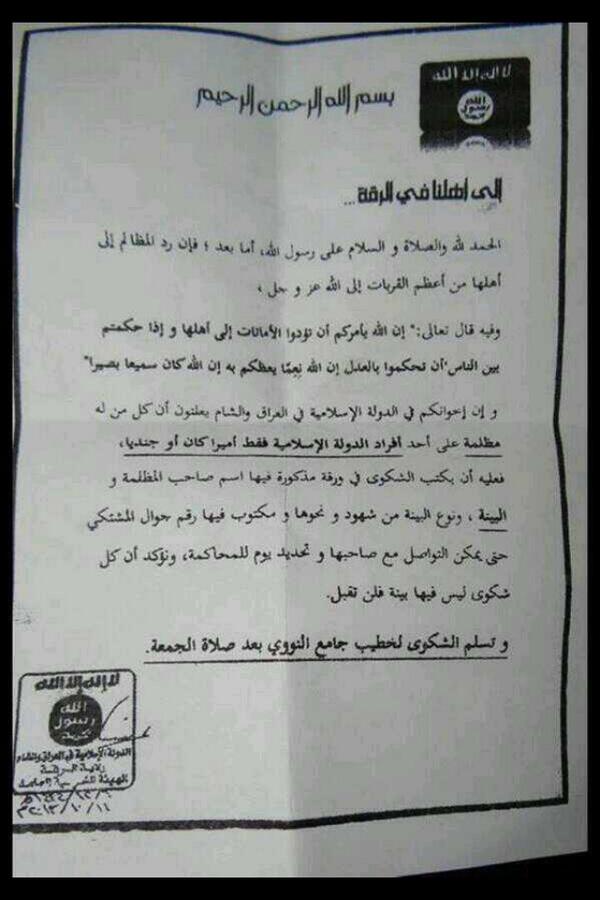 لا إله إلا الله
الله
رسول
محمد
بسم الله الرحمن الرحيم
إلى أهلنا في الرقة ...
الحمد لله والصلاة و السلام على رسول الله، أما بعد ؛ فإن رد المظالم إلى
أهلها من أعظم القربات إلى الله عز و جل ،
وفيه قال تعالى:" إن الله يأمركم أن تؤدوا الأمانات إلى أهلها و إذا حكمتم
بين الناس أن تحكموا بالعدل إن الله نِعِمّا يعظكم به إن الله كان سميعا بصيرا"
و إن إخوانكم في الدولة الإسلامية في العراق والشام يعلنون أن كل من له
مظلمة على أحد أفراد الدولة الإسلامية فقط أميرا كان أو جنديا،
فعليه أن يكتب الشكوى في ورقة مذكورة فيها اسم صاحب المظلمة و
البينة ، ونوع البينة من شهود و نحوها و مكتوب فيها رقم جوال المشتكي
حتى يمكن التواصل مع صاحبها و تحديد يوم للمحاكمة، ونؤكد أن كل
شكوى ليس فيها بينة فلن تقبل.
و تسلم الشكوى لخطيب جامع النووي بعد صلاة الجمعة.
لا إله إلا الله
الله
رسول
محمد
الدولة الإسلامية في العراق والشام
ولاية الرقة
الهيئة الشرعية
٢٠١٣/١٠/١١